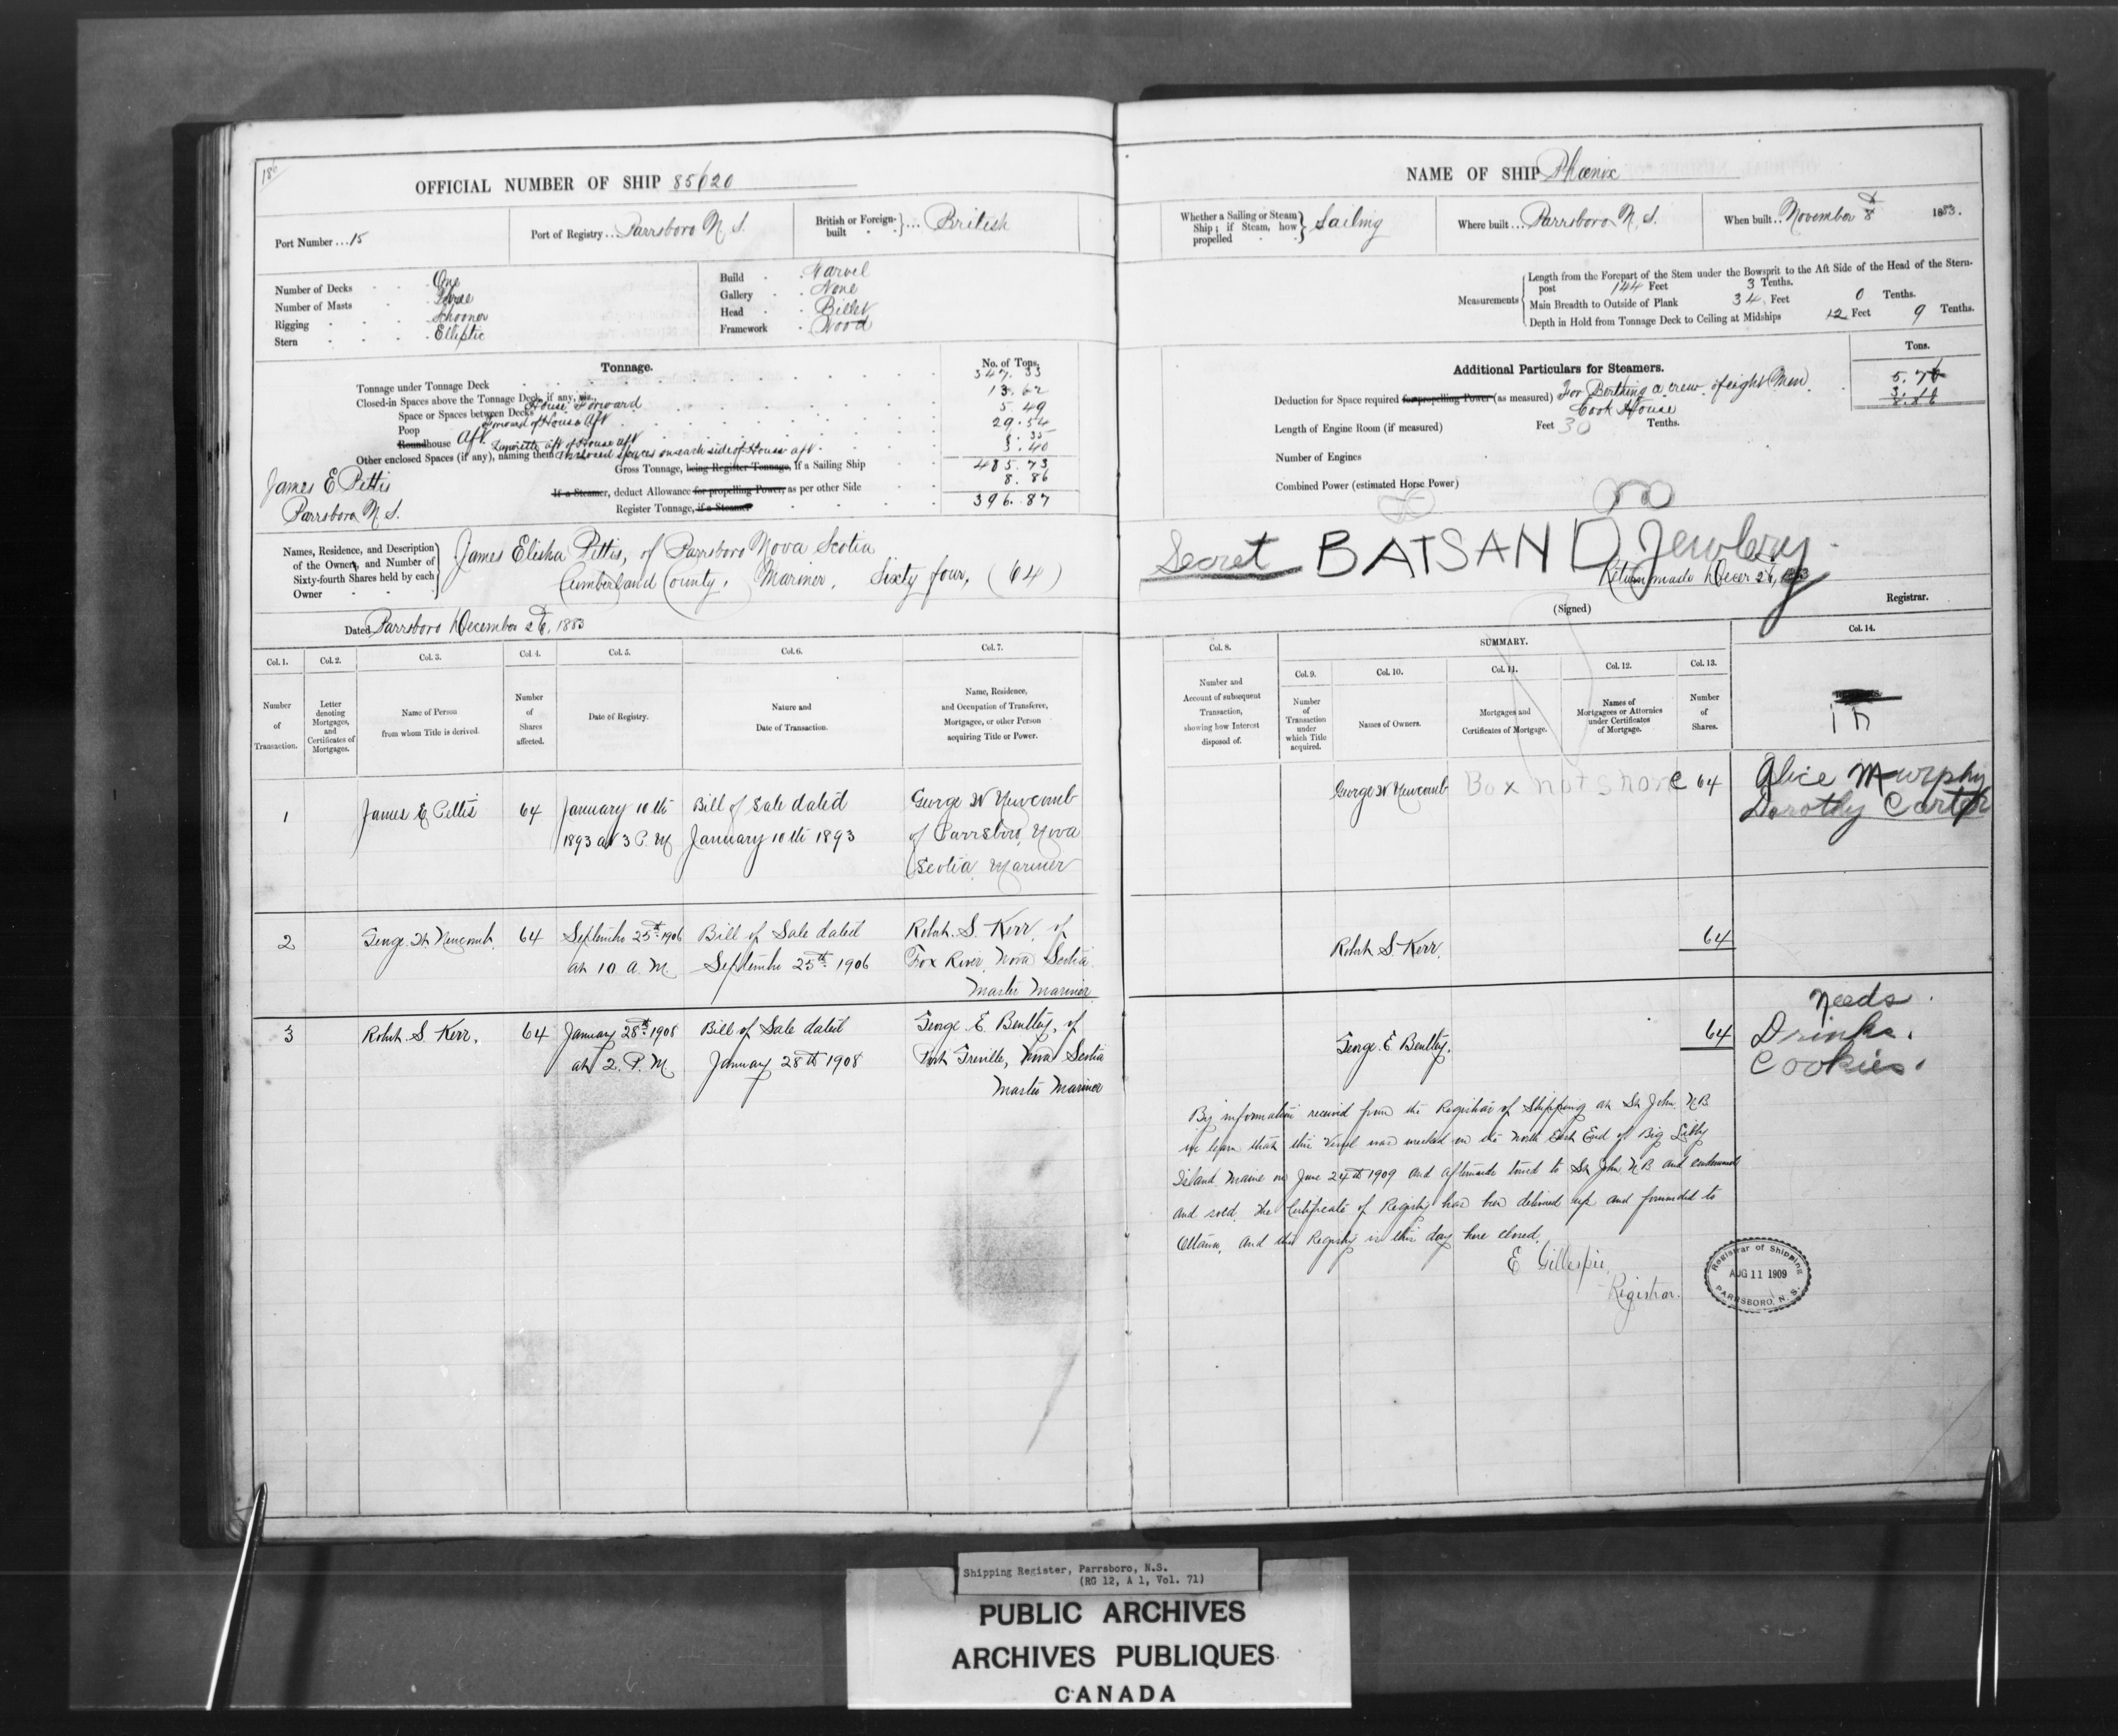 186
OFFICIAL NUMBER OF SHIP 85620
Port Number ... 15
Port of Registry ... Parrsboro N. S.
British or Foreign-built } ... British
Number of Decks One
Number of Masts Three
Rigging Schooner
Stern Elliptic
Build
Gallery None
Head Billet
Framework Wood
Tonnage.
No. of Tons.
Tonnage under Tonnage Deck 347.33
Closed-in Spaces above the Tonnage Deck, if any, viz., 13.62
Space or Spaces between Decks House Forward 5.49
Poop Forward of House Aft 29.54
Roundhouse Aft
Other enclosed Spaces (if any), naming them Enclosed spaces on each side of House aft. 3.40
Gross Tonnage, being Register Tonnage, if a Sailing Ship 405.73
If a Steamer, deduct Allowance for propelling Power, as per other Side 8.86
Register Tonnage, if a Steamer 396.87
James E Pettis
Parrsboro N. S.
Names, Residence, and Description
of the Owners, and Number of
Sixty-fourth Shares held by each
Owner
James Elisha Pettis, of Parrsboro Nova Scotia
Cumberland County, Mariner, Sixty four, (64)
Dated Parrsboro December 26, 1883
Col. 1. Col. 2. Col. 3. Col. 4. Col. 5. Col. 6. Col. 7.
Number
of
Transaction.
Letter
denoting
Mortgages,
and
Certificates of
Mortgages.
Name of Person
from whom Title is derived.
Number
of
Shares
affected.
Date of Registry.
Nature and
Date of Transaction.
Name, Residence,
and Occupation of Transferee,
Mortgagee, or other Person
acquiring Title or Power.
1 James E Pettis 64 January 10th Bill of Sale dated George W Newcomb
1893 at 3 P. M January 10th 1893 of Parrsboro, Nova
Scotia, Mariner
2 George W Newcomb 64 September 25th 1906 Bill of Sale dated Robt. S. Kerr, of
at 10 A. M. September 25th 1906 Fox River, Nova Scotia
Master Mariner
3 Robt. S. Kerr. 64 January 28th 1908 Bill of Sale dated George E. Bentley, of
at 2. P. M January 28th 1908 Port Greville, Nova Scotia
Master Mariner
NAME OF SHIP Phœnix
Whether a Sailing or Steam
Ship; if Steam, how
propelled
Sailing
Where built ... Parrsboro N. S.
When built .. November 8 1883.
Measurements
Length from the Forepart of the Stem under the Bowsprit to the Aft Side of the Head of the Stern-
post 144 Feet 3 Tenths.
Main Breadth to Outside of Plank 34 Feet 0 Tenths.
Depth in Hold from Tonnage Deck to Ceiling at Midships 12 Feet 9 Tenths.
Additional Particulars for Steamers.
Tons.
Deduction for Space required for propelling Power (as measured) For Berthing a crew of eight Men 5.70
Cook House 3.16
8.86
Length of Engine Room (if measured) Feet 30 Tenths.
Number of Engines
Combined Power (estimated Horse Power)
Secret BATSAN D Jewlery
Return made Decer 26, 1883
(Signed) Registrar.
Col. 8. SUMMARY. Col. 14.
Col. 9. Col. 10. Col. 11. Col. 12. Col. 13.
Number and
Account of subsequent
Transaction,
showing how Interest
disposed of.
Number
of
Transaction
under
which Title
acquired.
Names of Owners.
Mortgages and
Certificates of Mortgage.
Names of
Mortgagees or Attornies
under Certificates
of Mortgage.
Number
of
Shares.
in
George W Newcomb Box not shore 64
Alice Murphy
Dorothy Carter
Robt. S. Kerr. 64
George. E Bentley. 64
Needs
Drinks.
Cookies.
By information received from the Registrar of Shipping at St. John, N.B.
we learn that this Vessel was wrecked on the North East End of Big Libby
Island Maine on June 24th 1909 and afterwards towed to St John N B and condemned
and sold. The Certificate of Registry has been delivered up and forwarded to
Ottawa, and this Registry is this day here closed.
E Gillespie,
Registrar.
Registrar of Shipping
AUG 11 1909
PARRSBORO, N. S.
Shipping Register, Parrsboro, N.S.
(RG 12, A 1, Vol. 71)
PUBLIC ARCHIVES
ARCHIVES PUBLIQUES
CANADA